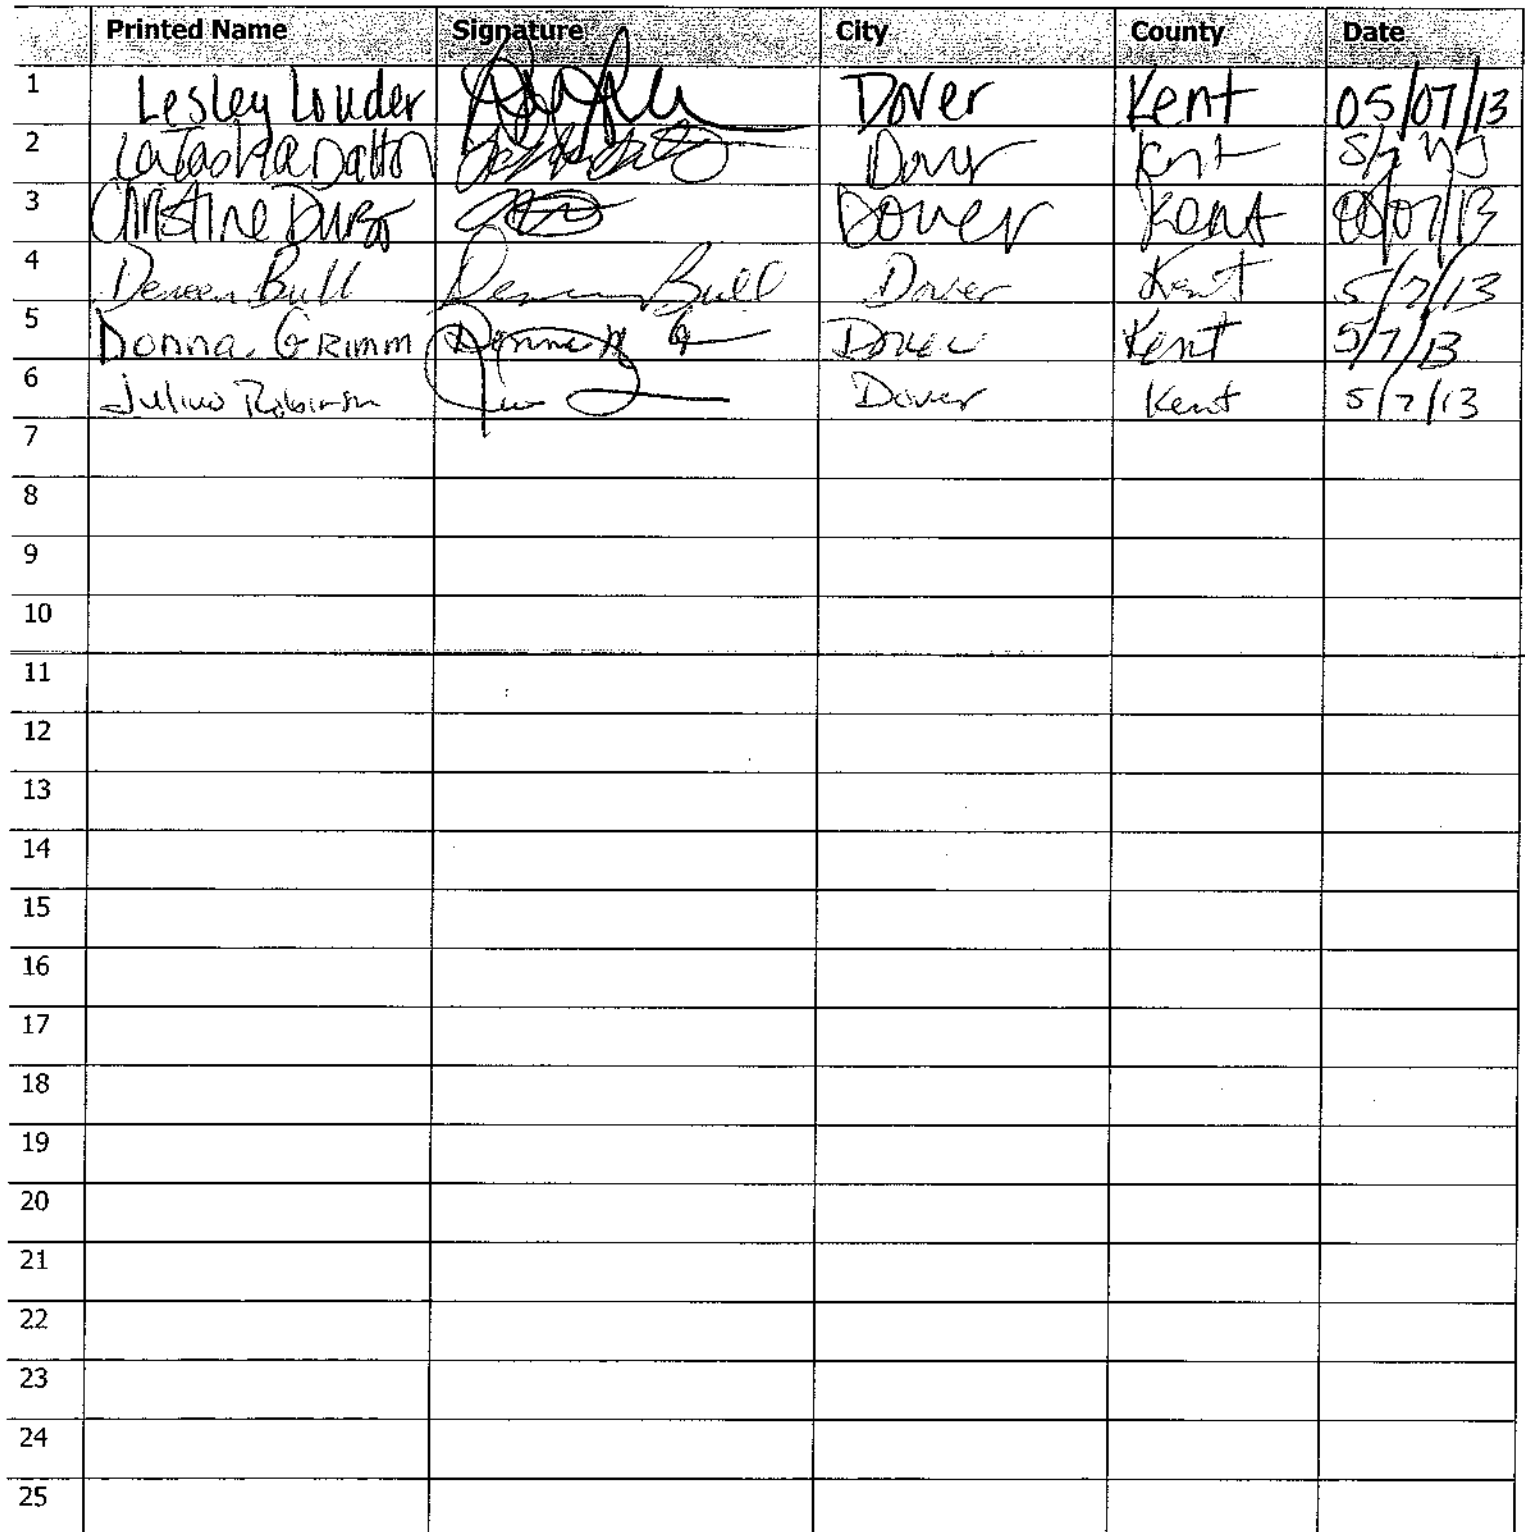 Printed Name Signature City County Date
1 Lesley Louder Dover Kent 05/07/13
2 LaTasha Dalton Dover Kent 5/7/13
3 Christine Dover Kent 05/07/13
4 Bull Bull Dover Kent 5/7/13
5 Donna Grimm Donna Dover Kent 5/7/13
6 Julius Robinson Dover Kent 5/7/13
7
8
9
10
11
12
13
14
15
16
17
18
19
20
21
22
23
24
25